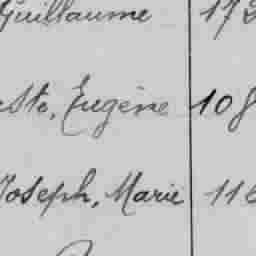 Guillaume 172
ste, Eugène 108
Joseph, Marie 116